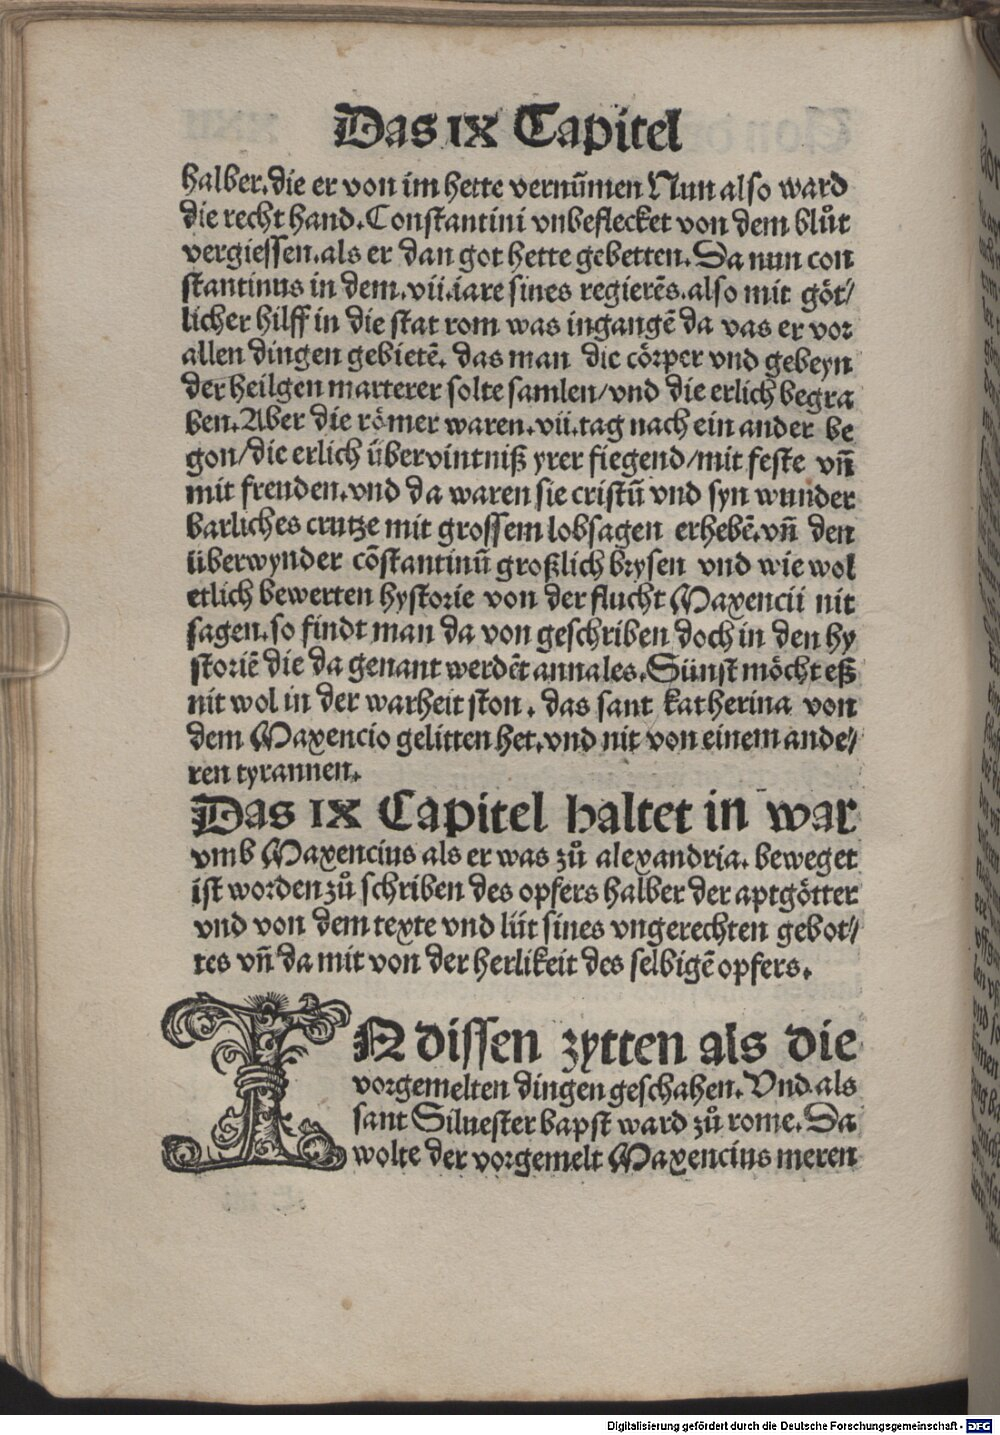 Das IX Capitel
halber. die er von im hette vernūmen Nun also ward
die recht hand. Constantini vnbeflecket von dem blůt
vergiessen. als er dan got hette gebetten. Da nun con
stantinus in dem. vii. iare sines regierēs. also mit göt//
licher hilff in die stat rom was ingangē da vas er vor
allen dingen gebietē. das man die cörper vnd gebeyn
der heilgen marterer solte samlen/vnd die erlich begra
ben. Aber die römer waren. vii. tag nach ein ander be
gon/die erlich übervintniß yrer fiegend/mit feste vn̄
mit freuden. vnd da waren sie cristū vnd syn wunder
barliches crutze mit grossem lobsagen erhebē. vn̄ den
überwynder cōstantinū großlich brysen vnd wie wol
etlich bewerten hystorie von der flucht Maxencii nit
sagen. so findt man da von geschriben doch in den hy
storiē die da genant werdēt annales. Sünst möcht eß
nit wol in der warheit ston. das sant katherina von
dem Maxencio gelitten het. vnd nit von einem ande//
ren tyrannen.
Das IX Capitel haltet in war
vmb Maxencius als er was zů alexandria. beweget
ist worden zů schriben des opfers halber der aptgötter
vnd von dem texte vnd lüt sines vngerechten gebot//
tes vn̄ da mit von der herlikeit des selbigē opfers.
IN dissen zytten als die
vorgemelten dingen geschahen. Vnd als
sant Siluester bapst ward zů rome. Da
wolte der vorgemelt Maxencius meren
Digitalisierung gefördert durch die Deutsche Forschungsgemeinschaft - DFG